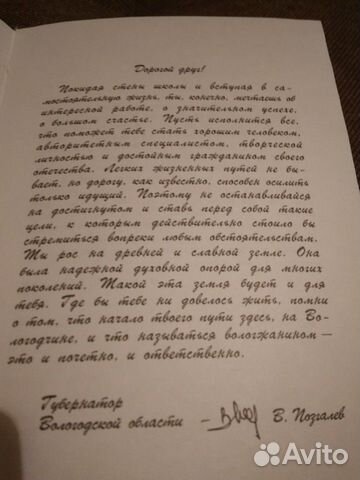 Дорогой друг!
Покидая стены школы и вступая в са-
мостоятельную жизнь, ты, конечно, мечтаешь об
интересной работе, о значительном успехе,
о большом счастье. Пусть исполнится все,
что поможет тебе стать хорошим человеком,
авторитетным специалистом, творческой
личностью и достойным гражданином своего
отечества. Легких жизненных путей не бы-
вает, но дорогу, как известно, способен осилить
только идущий. Поэтому не останавливайся
на достигнутом и ставь перед собой такие
цели, к которым действительно стоило бы
стремиться вопреки любым обстоятельствам.
Ты рос на древней и славной земле. Она
была надежной духовной опорой для многих
поколений. Такой эта земля будет и для
тебя. Где бы тебе ни довелось жить, помни
о том, что начало твоего пути здесь, на Во-
логодчине, и что называться вологжанином —
это и почетно, и ответственно.
Губернатор
Вологодской области
В. Позгалев
Avito